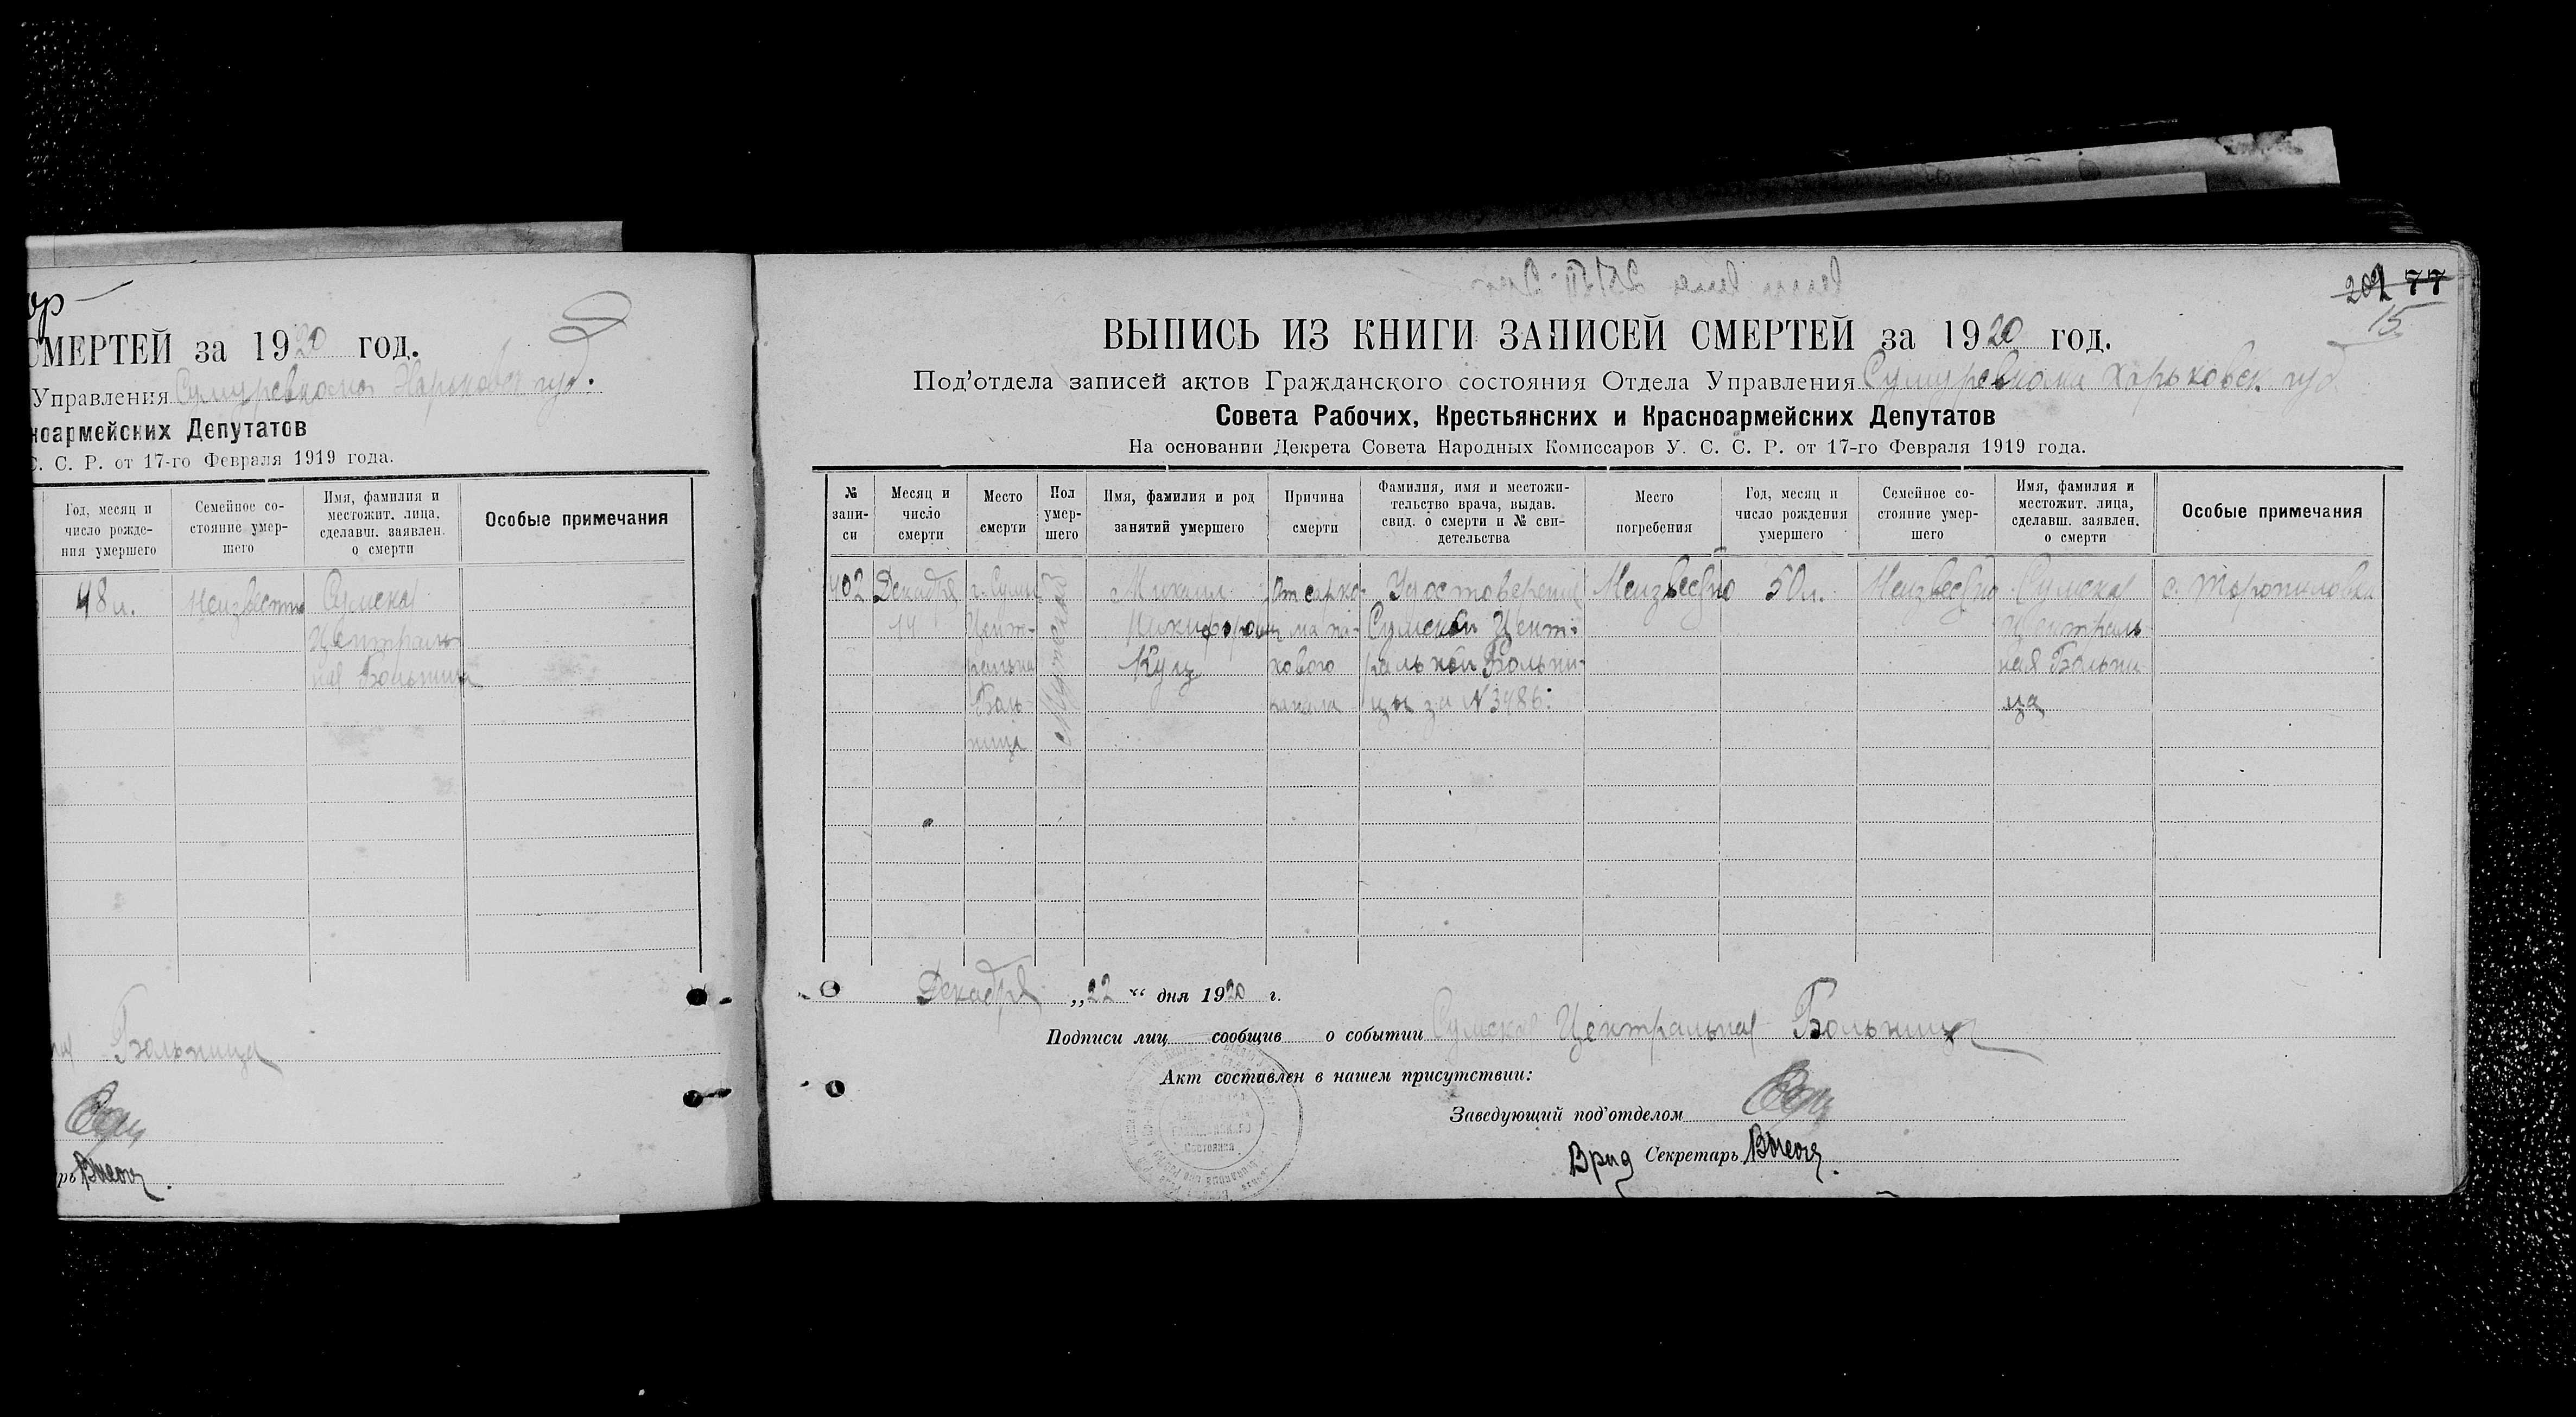 СМЕРТЕЙ за 1920 год.
Управления Сумуревкома Харьковск губ.
ноармейских Депутатов
С. С. Р. от 17-го Февраля 1919 года.
Год, месяц и
число рожде-
ния умершего
Семейное со-
стояние умер-
шего
Имя, фамилия и
местожит. лица,
сделавш. заявлен.
о смерти
Особые примечания
48 л.
Неизвестно
Сумская
Централь-
ная Больница
Больница
202 77
15
ВЫПИСЬ ИЗ КНИГИ ЗАПИСЕЙ СМЕРТЕЙ за 1920 год.
Под'отдела записей актов Гражданского состояния Отдела Управления Сумуревкома Харьковск губ
Совета Рабочих, Крестьянских и Красноармейских Депутатов
На основании Декрета Совета Народных Комиссаров У. С. С. Р. от 17-го Февраля 1919 года.
№
запи-
си
Месяц и
число
смерти
Место
смерти
Пол
умер-
шего
Имя, фамилия и род
занятий умершего
Причина
смерти
Фамилия, имя и местожи-
тельство врача, выдав.
свид. о смерти и № сви-
детельства
Место
погребения
Год, месяц и
число рождения
умершего
Семейное со-
стояние умер-
шего
Имя, фамилия и
местожит. лица,
сделавш. заявлен.
о смерти
Особые примечания
402
Декабря
14
г. Сумы
Цент-
ральна
Боль-
ница
Мужской
Михаил
Никифоров
Куц
От сарко-
ма па-
хового
канала
Удостоверение
Сумской Цент-
ральной Больни-
цы за N 3486.
Неизвесно
50 л.
Неизвесно
Сумская
Централь
ная Больни-
ца
с. Торопиловки
Декабря „22 “ дня 1920 г.
Подписи лиц сообщив о событии Сумская Центральная Больница
Акт составлен в нашем присутствии:
Заведующий под'отделом
Врид Секретарь